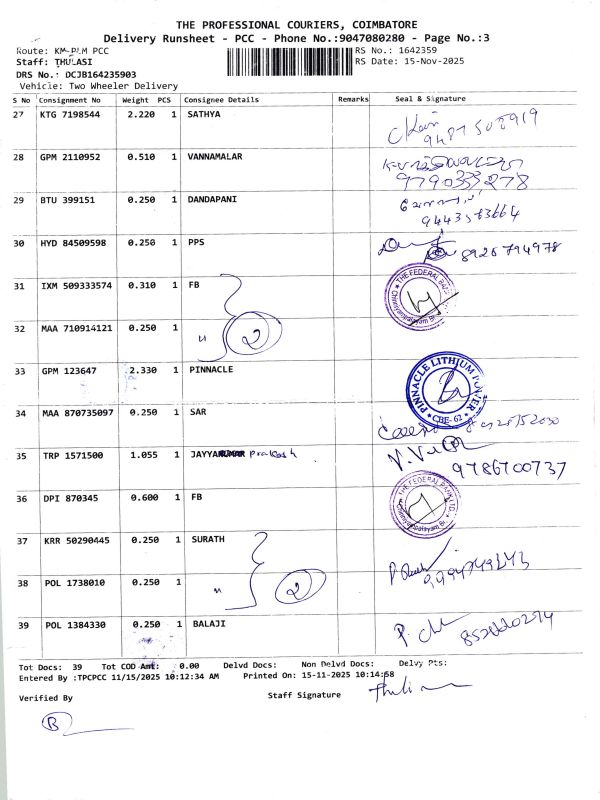 THE PROFESSIONAL COURIERS, COIMBATORE
Delivery Runsheet - PCC - Phone No.:9047080280 - Page No.:3
Route: KM-PLM PCC
RS No.: 1642359
Staff: THULASI
RS Date: 15-Nov-2025
DRS No.: DCJB164235903
Vehicle: Two Wheeler Delivery
S No Consignment No Weight PCS Consignee Details Remarks Seal & Signature
27 KTG 7198544 2.220 1 SATHYA
28 GPM 2110952 0.510 1 VANNAMALAR
9790333278
29 BTU 399151 0.250 1 DANDAPANI
30 HYD 84509598 0.250 1 PPS
8926794978
31 IXM 509333574 0.310 1 FB
THE FEDERAL BANK
32 MAA 710914121 0.250 1 " 2
33 GPM 123647 2.330 1 PINNACLE
PINNACLE LITHIUM POWER
CBE-62
34 MAA 870735097 0.250 1 SAR
35 TRP 1571500 1.055 1 JAYYA prakash
9786700737
36 DPI 870345 0.600 1 FB
THE FEDERAL BANK LTD.
37 KRR 50290445 0.250 1 SURATH
38 POL 1738010 0.250 1 " 2
39 POL 1384330 0.250 1 BALAJI
Tot Docs: 39 Tot COD Amt: 0.00 Delvd Docs: Non Delvd Docs: Delvy Pts:
Entered By :TPCPCC 11/15/2025 10:12:34 AM Printed On: 15-11-2025 10:14:58
Verified By Staff Signature
B